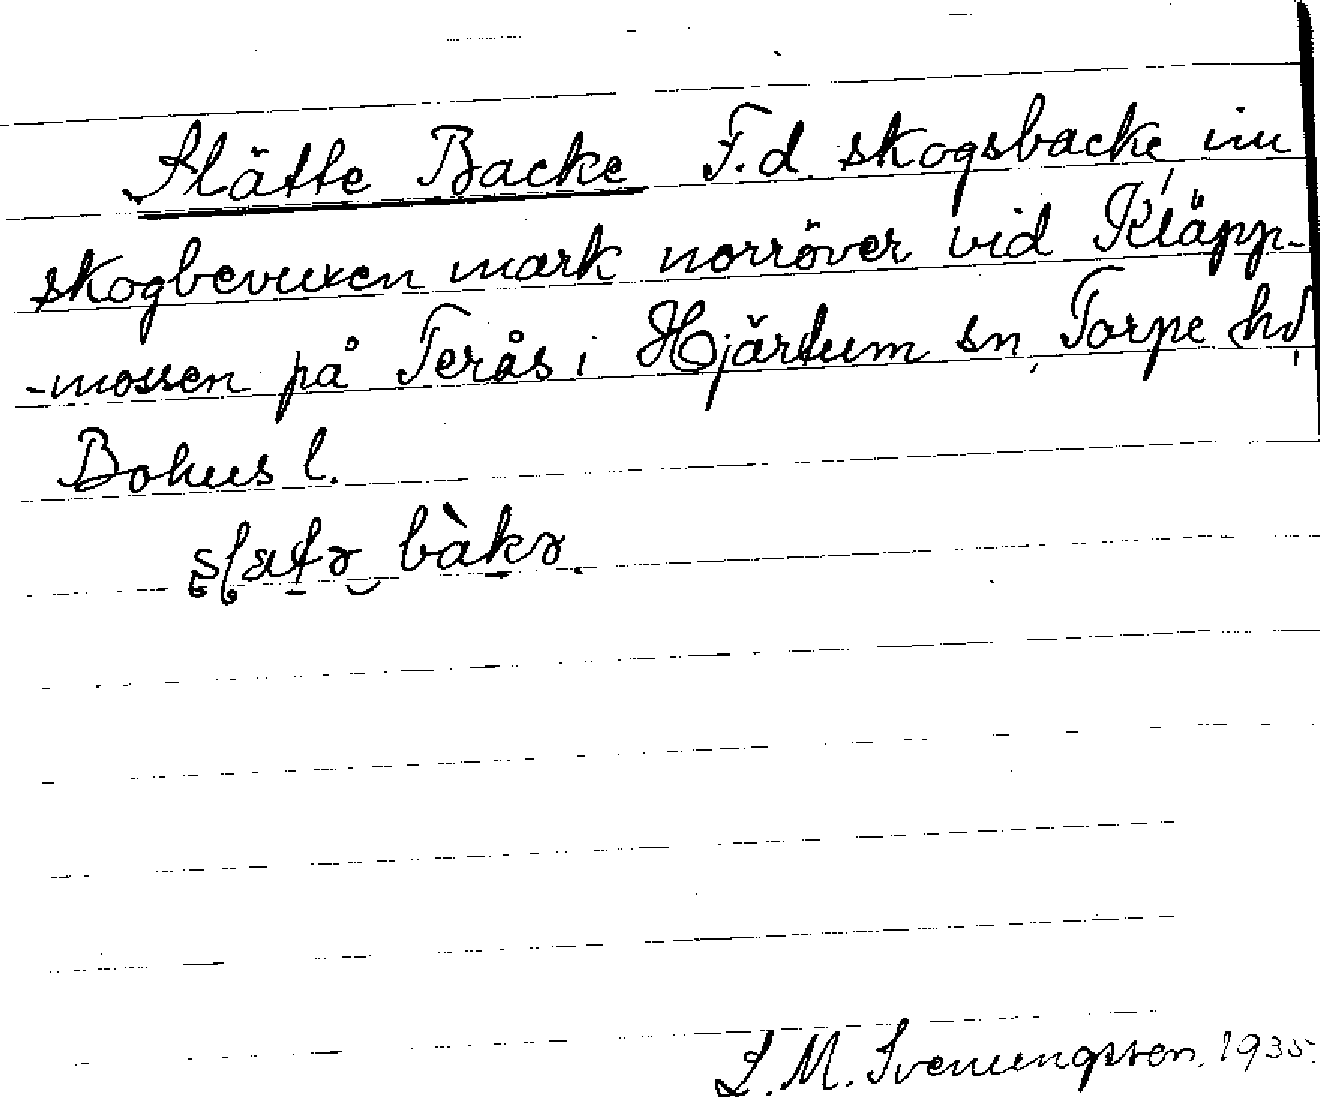 Slätte Backe F.d. skogsbacke, inu
skogbevuxen mark norröver vid Kläpp-
-mossen på Terås i Hjärtum sn, Torpe hd,
Bohus l.
bàkə
S. M. Svenungsson. 1935.